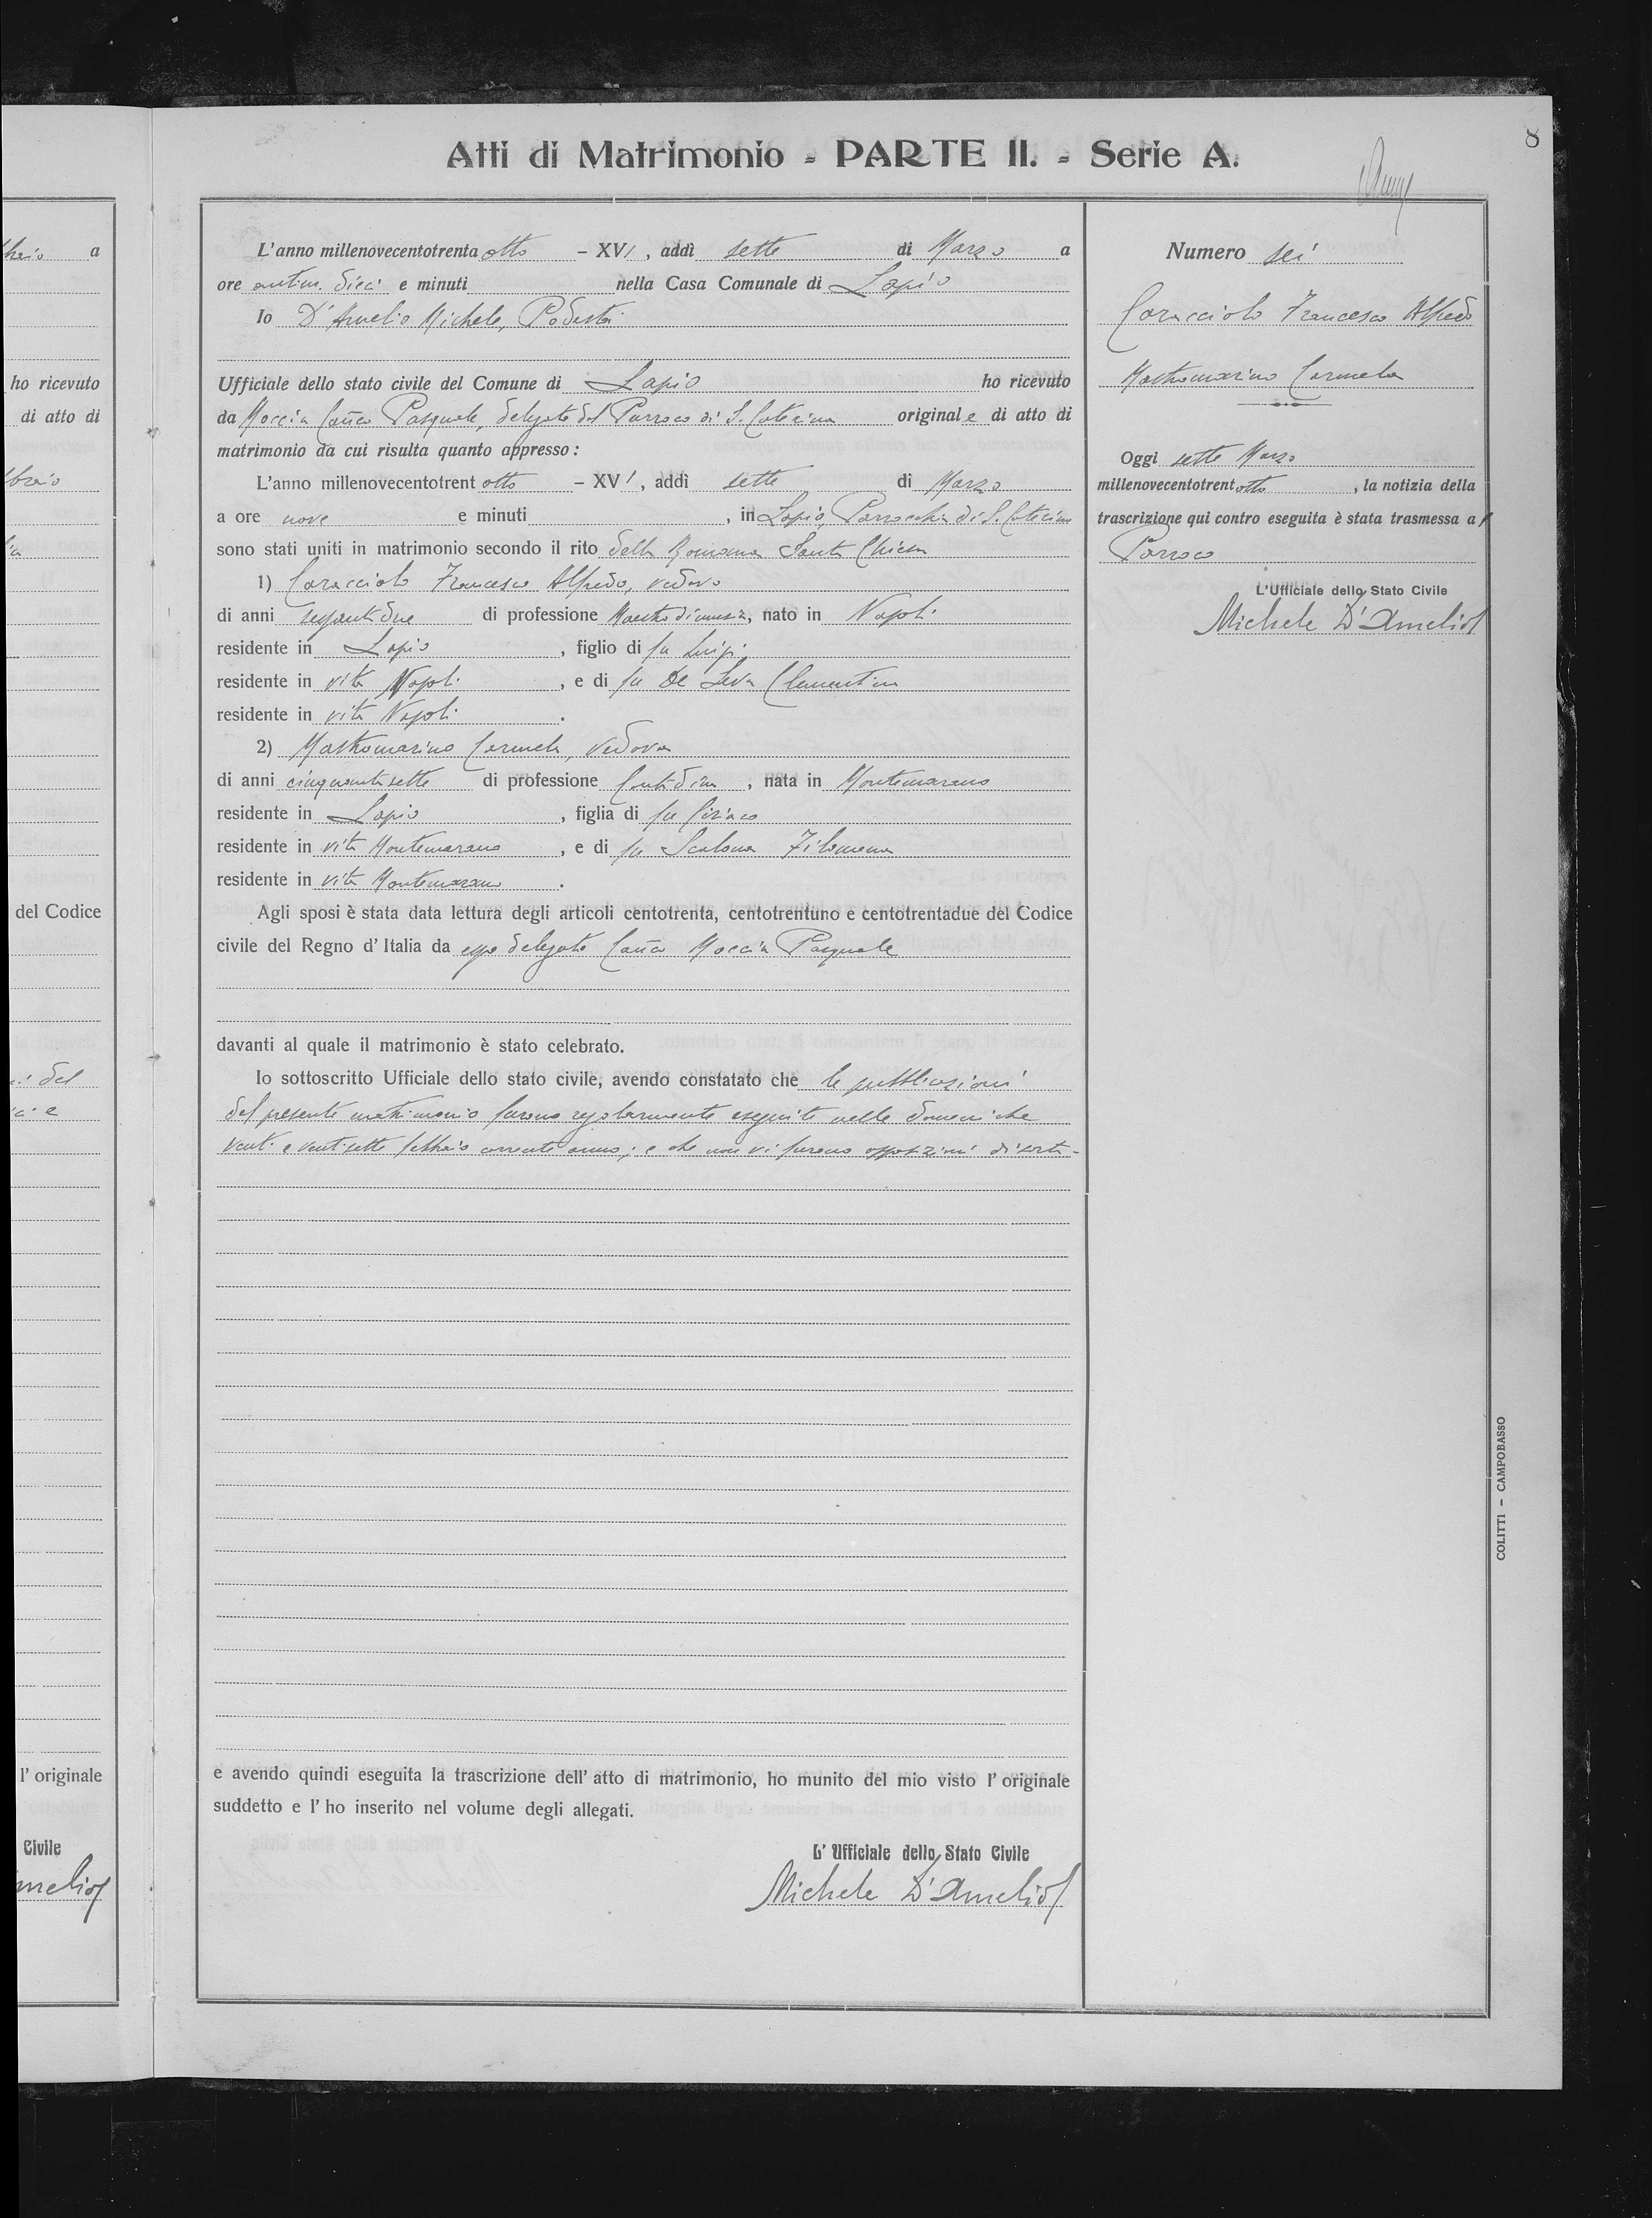 8
Atti di Matrimonio - PARTE II. - Serie A.
L'anno millenovecentotrenta otto - XVI, addì sette di Marzo a
ore antim. dieci e minuti nella Casa Comunale di Lapio
Io D'Amelio Michele, Podestà
Ufficiale dello stato civile del Comune di Lapio ho ricevuto
da Moccia Can.co Pasquale, delegato dal Parroco di S. Caterina originale di atto di
matrimonio da cui risulta quanto appresso:
L'anno millenovecentotrent otto - XVI, addì sette di Marzo
a ore nove e minuti , in Lapio, Parrocchia di S. Caterina
sono stati uniti in matrimonio secondo il rito della Romana Santa Chiesa
1) Caracciolo Francesco Alfredo, vedovo
di anni sessantadue di professione Maestro di musica, nato in Napoli
residente in Lapio , figlio di fu Luigi
residente in vita Napoli , e di fu De Leva Clementina
residente in vita Napoli .
2) Mastromarino Carmela, vedova
di anni cinquantasette di professione Contadina , nata in Montemarano
residente in Lapio , figlia di fu Ciriaco
residente in vita Montemarano , e di fu Scalona Filomena
residente in vita Montemarano .
Agli sposi è stata data lettura degli articoli centotrenta, centotrentuno e centotrentadue del Codice
civile del Regno d'Italia da esso delegato Can.co Moccia Pasquale
davanti al quale il matrimonio è stato celebrato.
Io sottoscritto Ufficiale dello stato civile, avendo constatato che le pubblicazioni
del presente matrimonio furono regolarmente eseguite nelle domeniche
venti e ventisette febbraio corrente anno; e che non vi furono opposizioni di sorta-
e avendo quindi eseguita la trascrizione dell'atto di matrimonio, ho munito del mio visto l'originale
suddetto e l'ho inserito nel volume degli allegati.
L'Ufficiale dello Stato Civile
Michele D'Amelio
Numero sei
Caracciolo Francesco Alfredo
Mastromarino Carmela
Oggi sette Marzo
millenovecentotrent otto , la notizia della
trascrizione qui contro eseguita è stata trasmessa al
Parroco
L'Ufficiale dello Stato Civile
Michele D'Amelio
COLITTI - CAMPOBASSO
a
ho ricevuto
di atto di
del Codice
del
l'originale
Civile